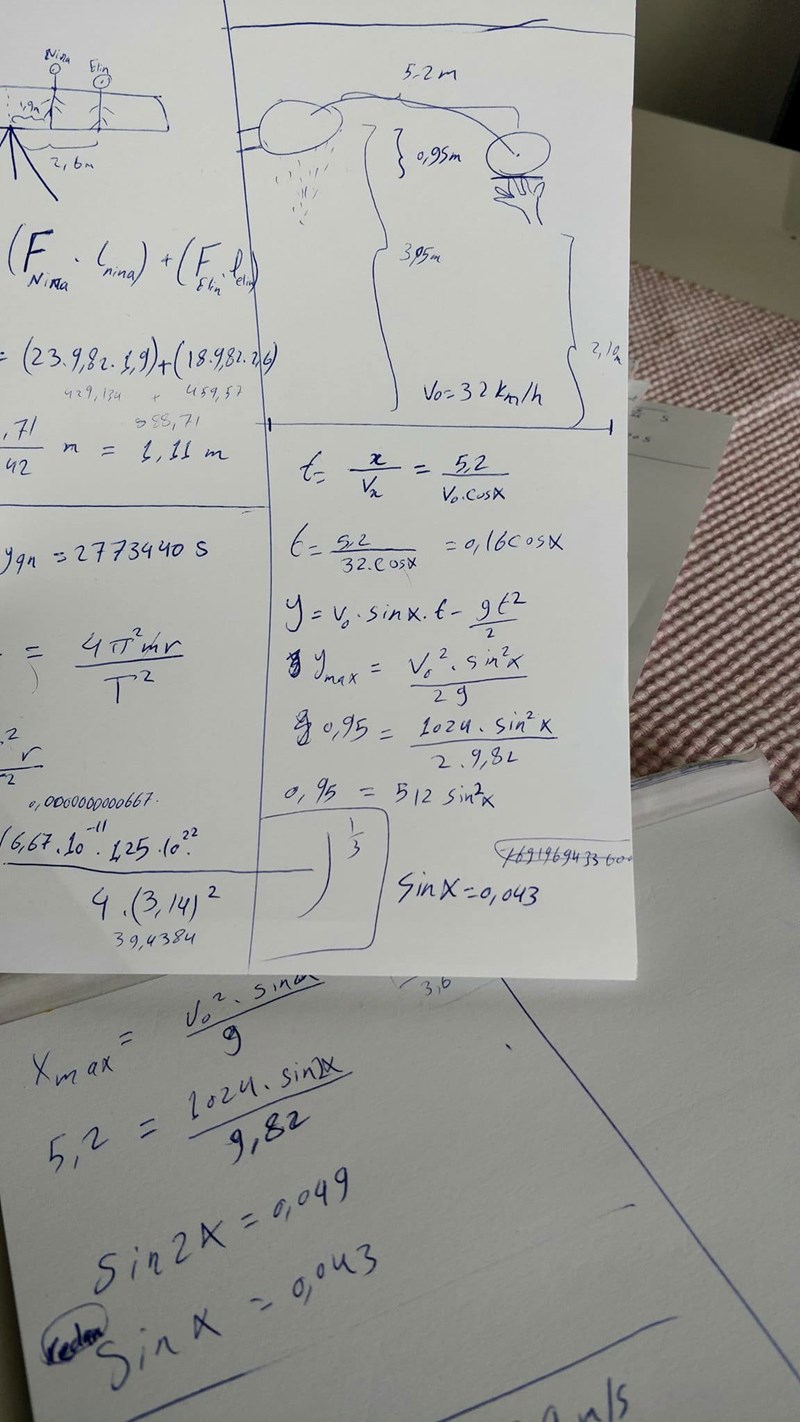 Nina
Elin
1,9m
2,6m
(F Nina . l nina) + (F Elin . l elin)
= (23.9,82.1,9)+(18.9,82.2,6)
429,134 + 459,57
888,71
,71
42
m = 1,11 m
= 2773440 s
= 4π²mr
T²
r
0,0000000000667.
6,67.10⁻¹¹.1,25.10²².
4.(3,14)²
39,4384
1/3
5.2m
0,95m
3,95m
2,10m
V₀=32 km/h
t= x/Vₓ = 5,2/V₀.cosx
t= 5,2/32.cosx = 0,16cosx
y = V₀.sinx.t - gt²/2
y max = V₀².sin²x/2g
0,95 = 1024.sin²x/2.9,82
0,95 = 512 sin²x
sinx=0,043
3,6
x max = V₀².sin/g
5,2 = 1024.sin2x/9,82
sin2x=0,049
sinx = 0,043
redan